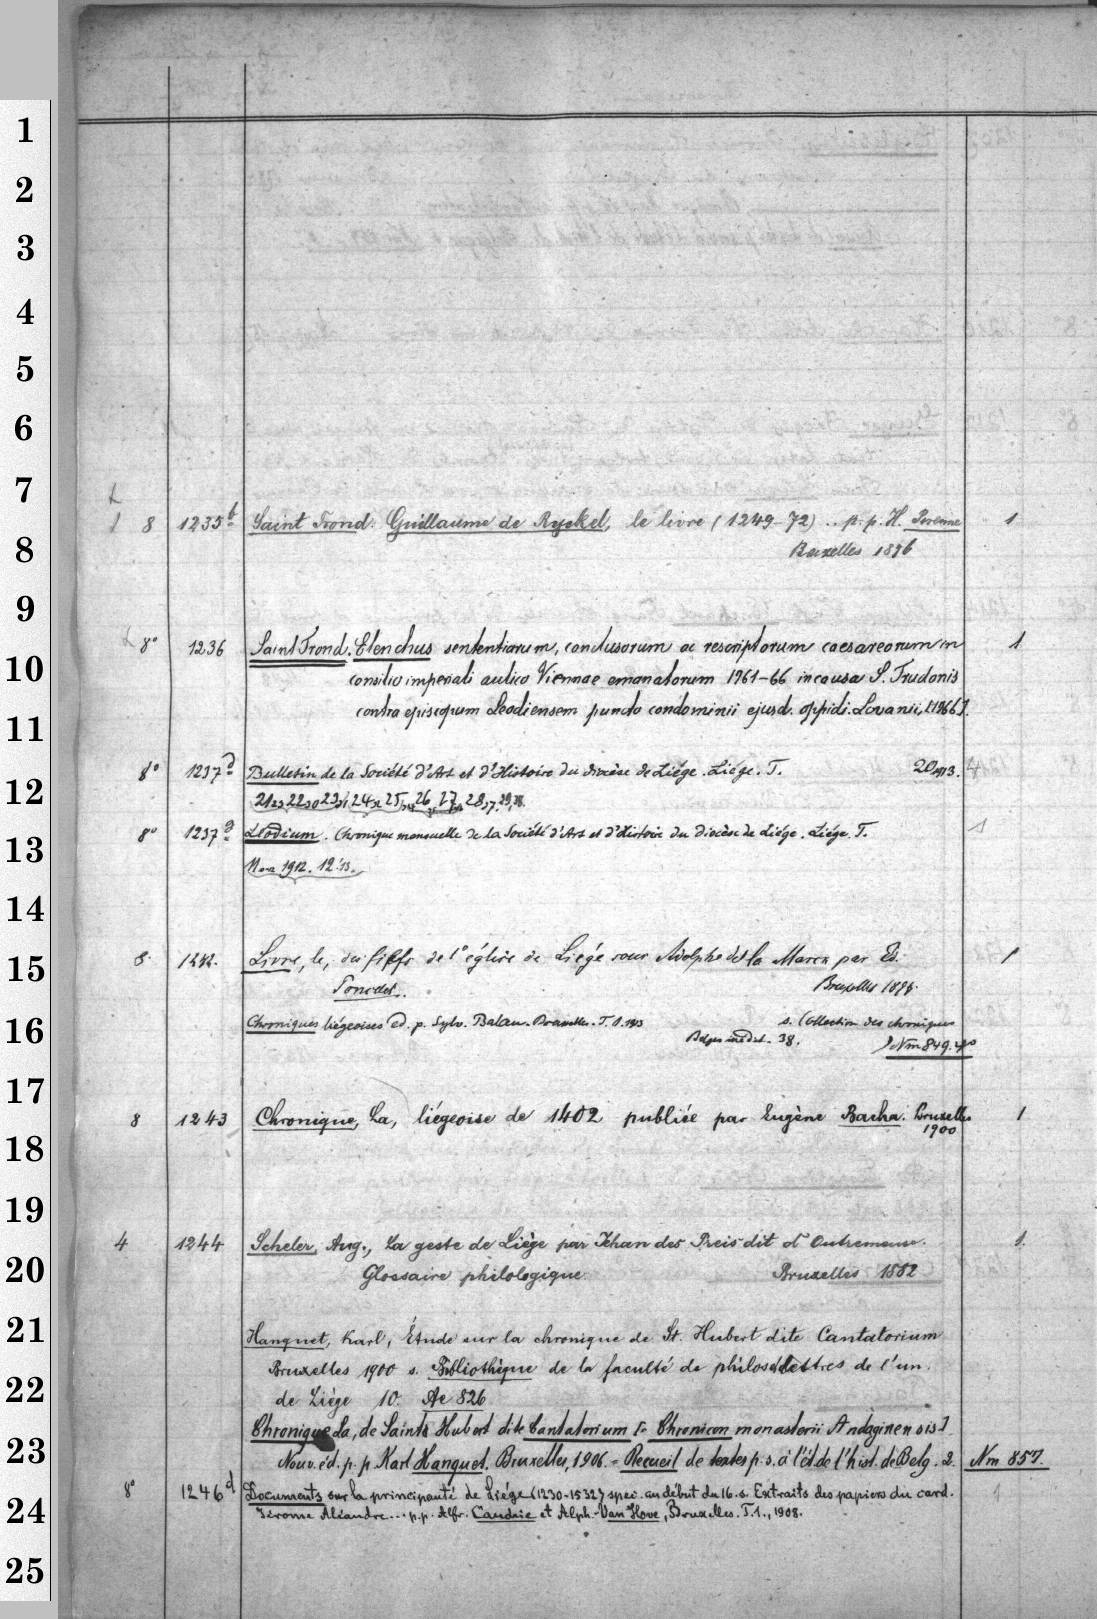 1
2
3
4
5
6
7
8
9
10
11
12
13
14
15
16
17
18
19
20
21
22
23
24
25
8 1235b Saint Trond. Guillaume de Ryckel, le livre (1249-72) .. p. p. H. Pirenne 1
Bruxelles 1896
8° 1236 Saint Trond. Elenchus sententiarum, conclusorum ac rescriptorum caesareorum in 1
consilio imperiali aulico Viennae emanatorum 1761-66 in causa S. Trudonis
contra episcopum Leodiensem puncto condominii ejusd. oppidi. Lovanii, [1766].
8° 1237 Bulletin de la Société d'Art et d'Histoire du diocèse de Liége. Liége. T. 20,1913. 4
8° 1237 Leodium. Chronique mensuelle de la Société d'Art et d'Histoire du Diocèse de Liége. Liége. T. 1
1912. 12.13.
8. 1242. Livre, le, des fiefs de l'église de Liége sous Adolphe de la Marck par Ed. 1
Poncelet. Bruxelles 1898.
Chroniques liégeoises ed. p. Sylv. Balau. Bruxelles. T. 1. 1913 s. Collection des chroniques
Belges inédit. 38. Nm 849.4°
8 1243 Chronique, La, liégeoise de 1402 publiée par Eugène Bacha. Bruxelles 1
1900
4 1244 Scheler, Aug., La geste de Liège par Jehan des Preis dit d'Outremeuse. 1.
Glossaire philologique. Bruxelles 1882
Hanquet, Karl, Étude sur la chronique de St. Hubert dite Cantatorium
Bruxelles 1900 s. Bibliothèque de la faculté de philos. lettres de l'un.
de Liége 10. Ae 826
Chronique La, de Saint Hubert dite Cantatorium [= Chronicon monasterii Andaginensis]
Nouv. éd. p. p. Karl Hanquet. Bruxelles, 1906. = Recueil de textes p. s. à l'ét. de l'hist. de Belg. 2. Nm 857.
8° 1246d Documents sur la principauté de Liége (1230-1532) spec. au début du 16. s. Extraits des papiers du card. 1
Jérome Aléandre... p. p. Alfr. Cauchie et Alph. Van Hove, Bruxelles. T. 1., 1908.